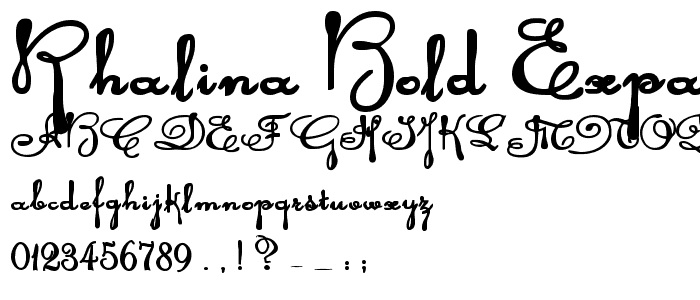 Rhalina Bold Expa
ABCDEFGHIJKLMNOP
abcdefghijklmnopqrstuvwxyz
0123456789 .,!? - _ : ;